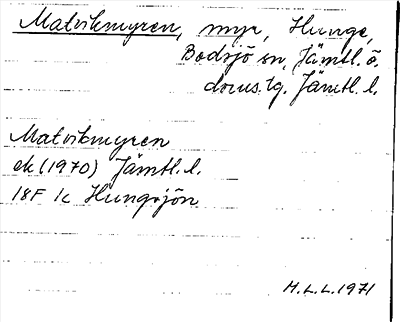 Matvikmyren, myr, Hunge,
Bodsjö sn, Jämtl. ö.
doms.tg. Jämtl. l.
Matvikmyren
ek (1970) Jämtl. l.
18F 1c Hungsjön
M.L.L. 1971